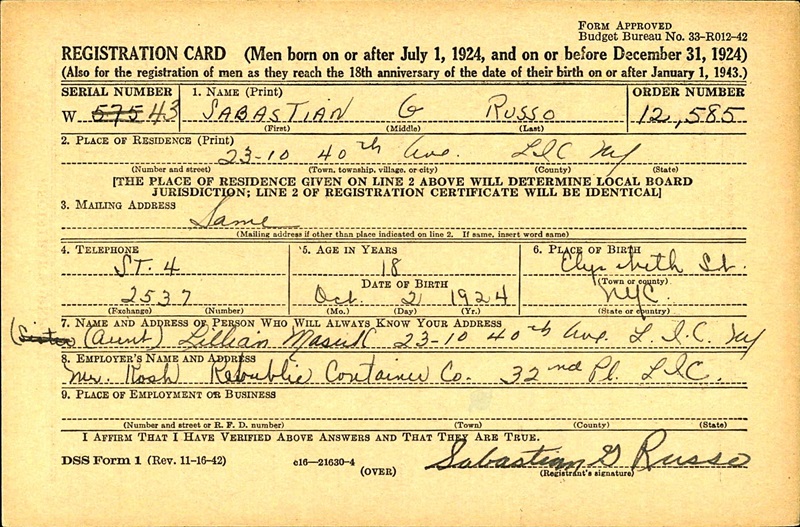 FORM APPROVED
Budget Bureau No. 33-R012-42
REGISTRATION CARD (Men born on or after July 1, 1924, and on or before December 31, 1924)
(Also for the registration of men as they reach the 18th anniversary of the date of their birth on or after January 1, 1943.)
SERIAL NUMBER 1. NAME (Print) ORDER NUMBER
W 575 43 SABASTIAN G RUSSO 12,585
(First) (Middle) (Last)
2. PLACE OF RESIDENCE (Print)
23-10 40th Ave. L I C NY
(Number and street) (Town, township, village, or city) (County) (State)
[THE PLACE OF RESIDENCE GIVEN ON LINE 2 ABOVE WILL DETERMINE LOCAL BOARD
JURISDICTION; LINE 2 OF REGISTRATION CERTIFICATE WILL BE IDENTICAL]
3. MAILING ADDRESS
Same
(Mailing address if other than place indicated on line 2. If same, insert word same)
4. TELEPHONE 5. AGE IN YEARS 6. PLACE OF BIRTH
ST. 4 18 St.
DATE OF BIRTH (Town or county)
2537 Oct. 2 1924 NYC.
(Exchange) (Number) (Mo.) (Day) (Yr.) (State or country)
7. NAME AND ADDRESS OF PERSON WHO WILL ALWAYS KNOW YOUR ADDRESS
(Sister (Aunt) Lillian 23-10 40th Ave. L. I. C. NY
8. EMPLOYER'S NAME AND ADDRESS
Mr. Kosh Republic Container Co. 32nd Pl. L I C.
9. PLACE OF EMPLOYMENT OR BUSINESS
(Number and street or R. F. D. number) (Town) (County) (State)
I AFFIRM THAT I HAVE VERIFIED ABOVE ANSWERS AND THAT THEY ARE TRUE.
DSS Form 1 (Rev. 11-16-42) c16—21630-4 (OVER) Sabastian G Russo
(Registrant's signature)